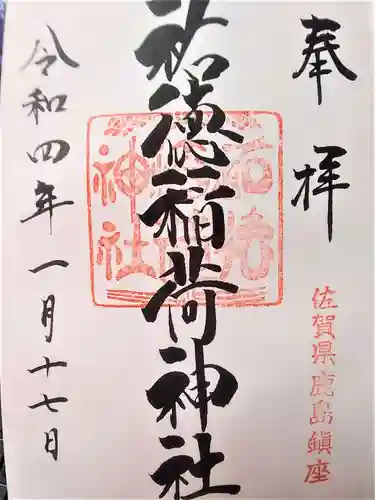 奉拝
佐賀県鹿島鎮座
祐徳稲荷神社
祐徳稲荷神社
令和四年一月十七日